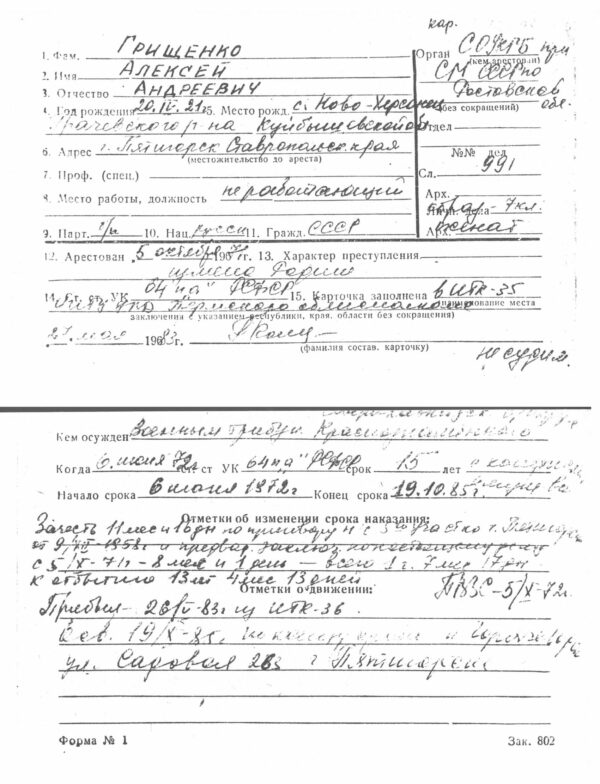 кар.
1. Фам. ГРИЩЕНКО
Орган СОУКГБ при
(кем арестован)
2. Имя АЛЕКСЕЙ
СМ СССР по
3. Отчество АНДРЕЕВИЧ
Ростовской обл.
(без сокращений)
4. Год рождения 20.IV.21 5. Место рожд. с. Ново-Херсонец
Грачевского р-на Куйбышевской об
Отдел
6. Адрес г. Пятигорск Ставропольск. края
(местожительство до ареста)
№№ дел
7. Проф. (спец.)
Сл. 991
8. Место работы, должность неработающий
Арх.
Личн. дела
образ- 7 кл.
9. Парт. б/п 10. Нац. русск 11. Гражд. СССР
Арх.
женат
12. Арестован 5 октября 1971г. 13. Характер преступления
измена Родине
14. ст. УК 64 "а" РСФСР 15. Карточка заполнена в ИТК-35
наименование места
УИТУ УВД Пермского облисполкома
заключения с указанием республики, края, области без сокращений)
27 мая 1983г.
(фамилия состав. карточку)
не судим.
Кем осужден Военным трибун. Краснознаменного
Когда 6 июня 72г. ст УК 64 п "а" РСФСР срок 15 лет с конфиск
Начало срока 6 июня 1972г Конец срока 19.10.85г.
Отметки об изменении срока наказания:
Зачесть 11 мес и 1 одн по приговору н с 3го участка г. Пятигор
от 9/XII-1958г. и предвар. заключ. по настоящему делу
с 5/X-71г - 8 мес и 1 день — всего 1 г. 7 мес 17 дн.
К отбытию 13 лет 4 мес 13 дней
Отметки о движении:
ПВЗС-5/X-72г.
Прибыл- 26/V-83г из ИТК-36.
Осв. 19/X-85г.
ул. Садовая г Пятигорск
Форма № 1
Зак. 802